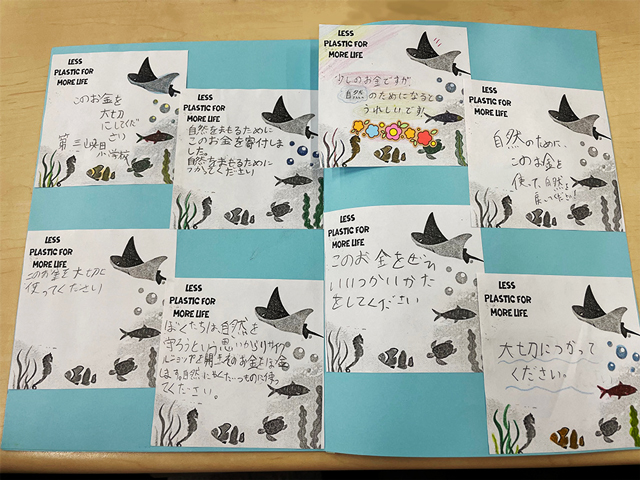 LESS
PLASTIC FOR
MORE LIFE
このお金を
大切
にしてくだ
さい
第三峡田
小学校
LESS
PLASTIC FOR
MORE LIFE
自然をまもるために
このお金を寄付しま
した。
自然をまもるために
つかてください
LESS
PLASTIC FOR
MORE LIFE
少しのお金ですが、
自然のためになると
うれしいです!
LESS
PLASTIC FOR
MORE LIFE
自然のために、
このお金を
使って、自然を
良くしてください!
LESS
PLASTIC FOR
MORE LIFE
このお金を大切に
使ってください
LESS
PLASTIC FOR
MORE LIFE
ぼくたちは自然を
守ろうという思いからリサイク
そのお金をぼ金
します。自然に
使っ
てください。
LESS
PLASTIC FOR
MORE LIFE
このお金をぜひ
いいつかいかた
をしてください
LESS
PLASTIC FOR
MORE LIFE
大切につかって
ください。